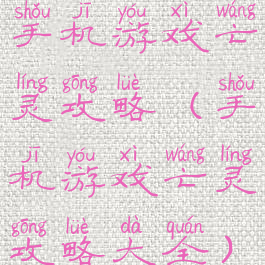 shǒu jī yóu xì wáng
手机游戏亡
líng gōng lüè shǒu
灵攻略（手
jī yóu xì wáng líng
机游戏亡灵
gōng lüè dà quán
攻略大全）